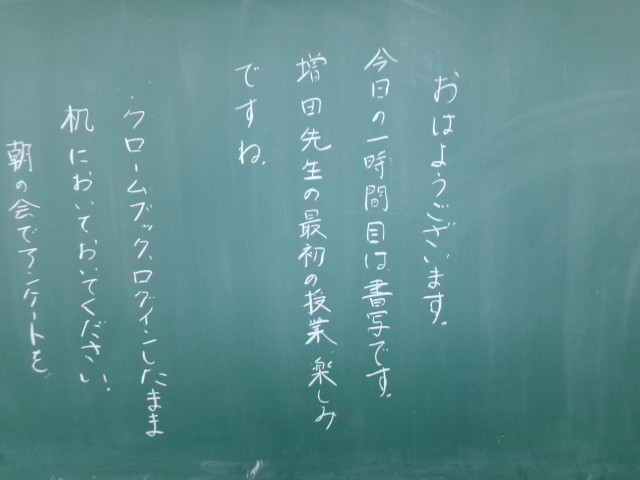 おはようございます。
今日の一時間目は、書写です。
増田先生の最初の授業、楽しみ
ですね。
・クロームブック、ログインしたまま
机においておいてください。
朝の会でアンケートを